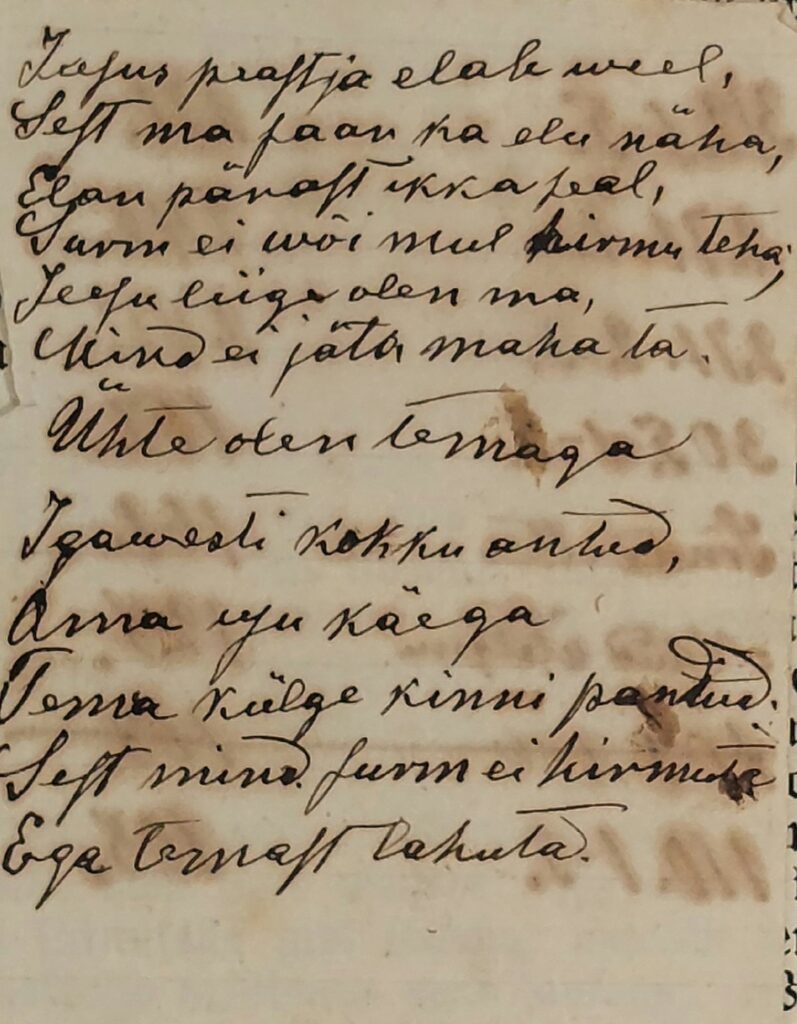 Jeesus peastja elab weel,
Sest ma saan ka elu näha,
Elan pärast ikka seal,
Surm ei wõi mul hirmu teha,
Jeesu liige olen ma,
Mind ei jäta maha ta.
Ühte olen temaga
Igawesti kokku antud,
Oma usu käega
Tema külge kinni pantud.
Sest mind surm ei hirmuta
Ega temast lahuta.